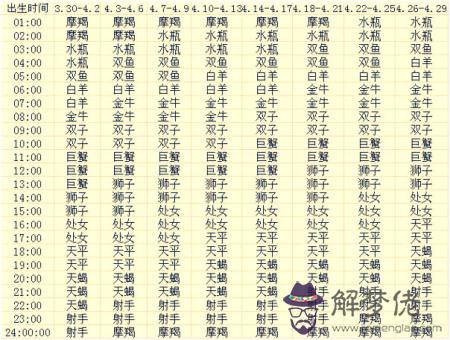 出生时间 3.30-4.2 4.3-4.6 4.7-4.9 4.10-4.13 4.14-4.17 4.18-4.21 4.22-4.25 4.26-4.29
01:00 摩羯 摩羯 摩羯 摩羯 摩羯 摩羯 水瓶 水瓶
02:00 摩羯 摩羯 水瓶 水瓶 水瓶 水瓶 水瓶 水瓶
03:00 水瓶 水瓶 水瓶 水瓶 水瓶 双鱼 双鱼 双鱼
04:00 水瓶 双鱼 双鱼 双鱼 双鱼 双鱼 双鱼 白羊
05:00 双鱼 双鱼 双鱼 白羊 白羊 白羊 白羊 白羊
06:00 白羊 白羊 白羊 白羊 白羊 金牛 金牛 金牛
07:00 白羊 金牛 金牛 金牛 金牛 金牛 金牛 金牛
08:00 金牛 金牛 金牛 金牛 双子 双子 双子 双子
09:00 双子 双子 双子 双子 双子 双子 双子 双子
10:00 双子 双子 双子 双子 巨蟹 巨蟹 巨蟹 巨蟹
11:00 巨蟹 巨蟹 巨蟹 巨蟹 巨蟹 巨蟹 巨蟹 巨蟹
12:00 巨蟹 巨蟹 巨蟹 巨蟹 巨蟹 狮子 狮子 狮子
13:00 巨蟹 狮子 狮子 狮子 狮子 狮子 狮子 狮子
14:00 狮子 狮子 狮子 狮子 狮子 狮子 处女 处女
15:00 狮子 狮子 处女 处女 处女 处女 处女 处女
16:00 处女 处女 处女 处女 处女 处女 处女 天平
17:00 处女 处女 处女 天平 天平 天平 天平 天平
18:00 天平 天平 天平 天平 天平 天平 天平 天蝎
19:00 天平 天平 天平 天平 天蝎 天蝎 天蝎 天蝎
20:00 天蝎 天蝎 天蝎 天蝎 天蝎 天蝎
21:00 天蝎 天蝎 天蝎 天蝎 天蝎
22:00 天蝎 天蝎 射手 射手 射手
23:00 射手 射手 射手 射手 射手
24:00:00 射手 摩羯 摩羯 摩羯 摩羯 摩羯 摩羯 摩羯
解梦佬